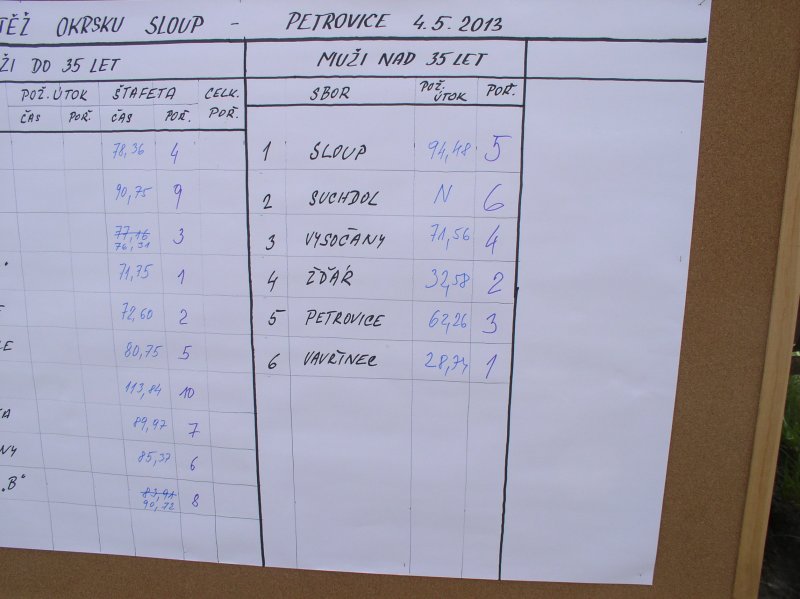 TĚŽ OKRSKU SLOUP - PETROVICE 4.5.2013
ŽI DO 35 LET
MUŽI NAD 35 LET
POŽ. ÚTOK ŠTAFETA CELK. POŘ.
ČAS POŘ. ČAS POŘ.
SBOR POŽ. ÚTOK POŘ.
78,36 4
90,75 9
77,16
76,31 3
71,75 1
72,60 2
LE 80,75 5
113,84 10
KA 89,97 7
NY 85,37 6
"B" 83,91
90,72 8
1 SLOUP 94,48 5
2 SUCHDOL N 6
3 VYSOČANY 71,56 4
4 ŽĎÁR 32,58 2
5 PETROVICE 62,26 3
6 VAVŘINEC 28,74 1